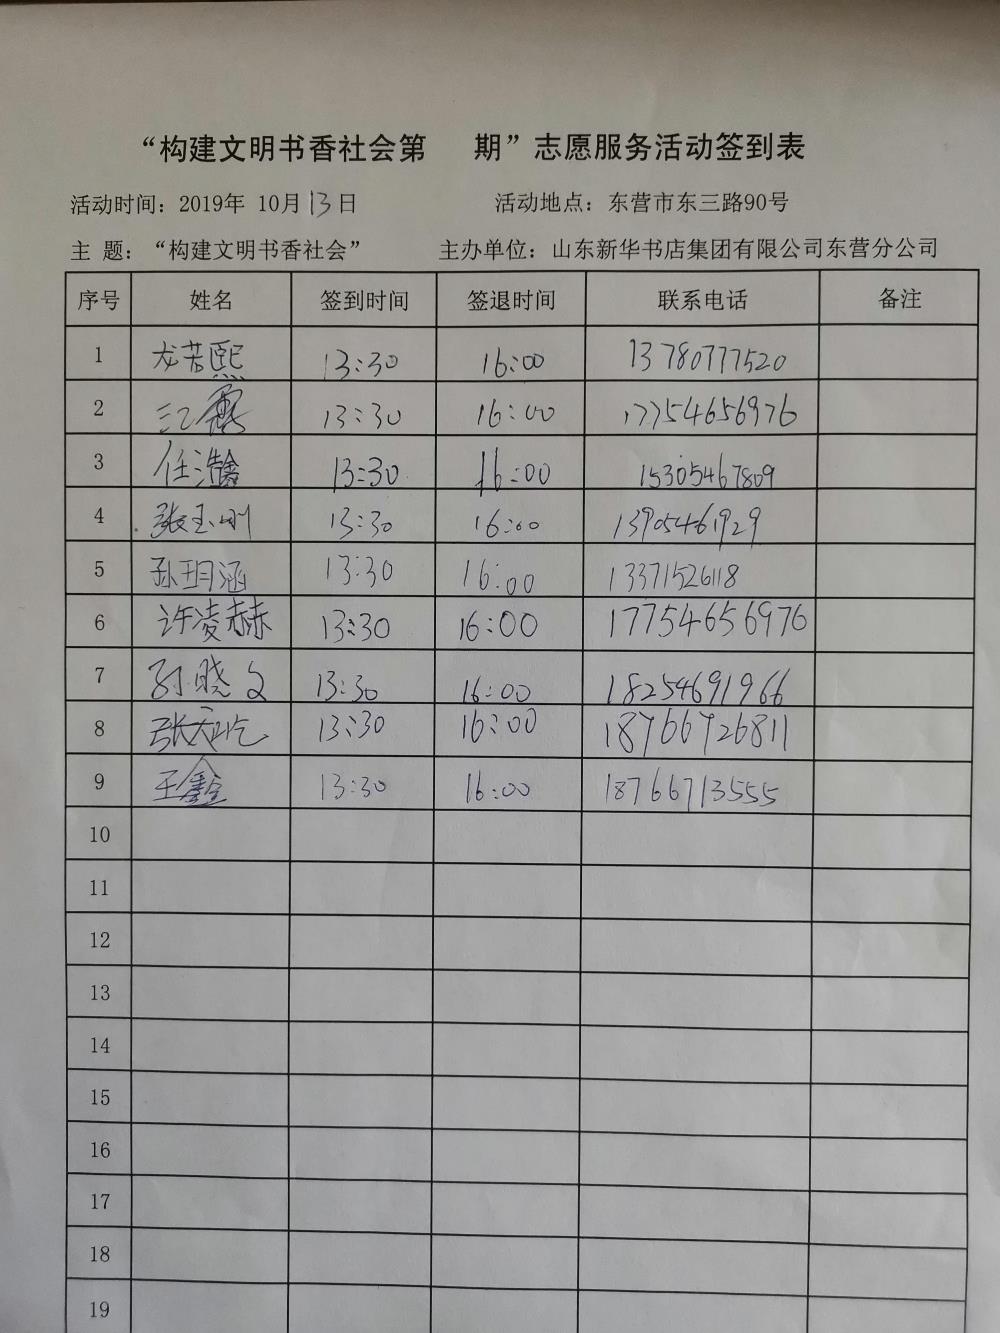 “构建文明书香社会第 期”志愿服务活动签到表
活动时间：2019年 10月13日 活动地点：东营市东三路90号
主 题：“构建文明书香社会” 主办单位：山东新华书店集团有限公司东营分公司
序号 姓名 签到时间 签退时间 联系电话 备注
1 龙若熙 13:30 16:00 13780777520
2 13:30 16:00 17754656976
3 任 13:30 16:00 15305467809
4 张玉刚 13:30 16:00 13905461929
5 孙玥涵 13:30 16:00 13371526118
6 许凌赫 13:30 16:00 17754656976
7 孙晓文 13:30 16:00 18254691966
8 张 13:30 16:00 18766726811
9 王鑫 13:30 16:00 18766713555
10
11
12
13
14
15
16
17
18
19